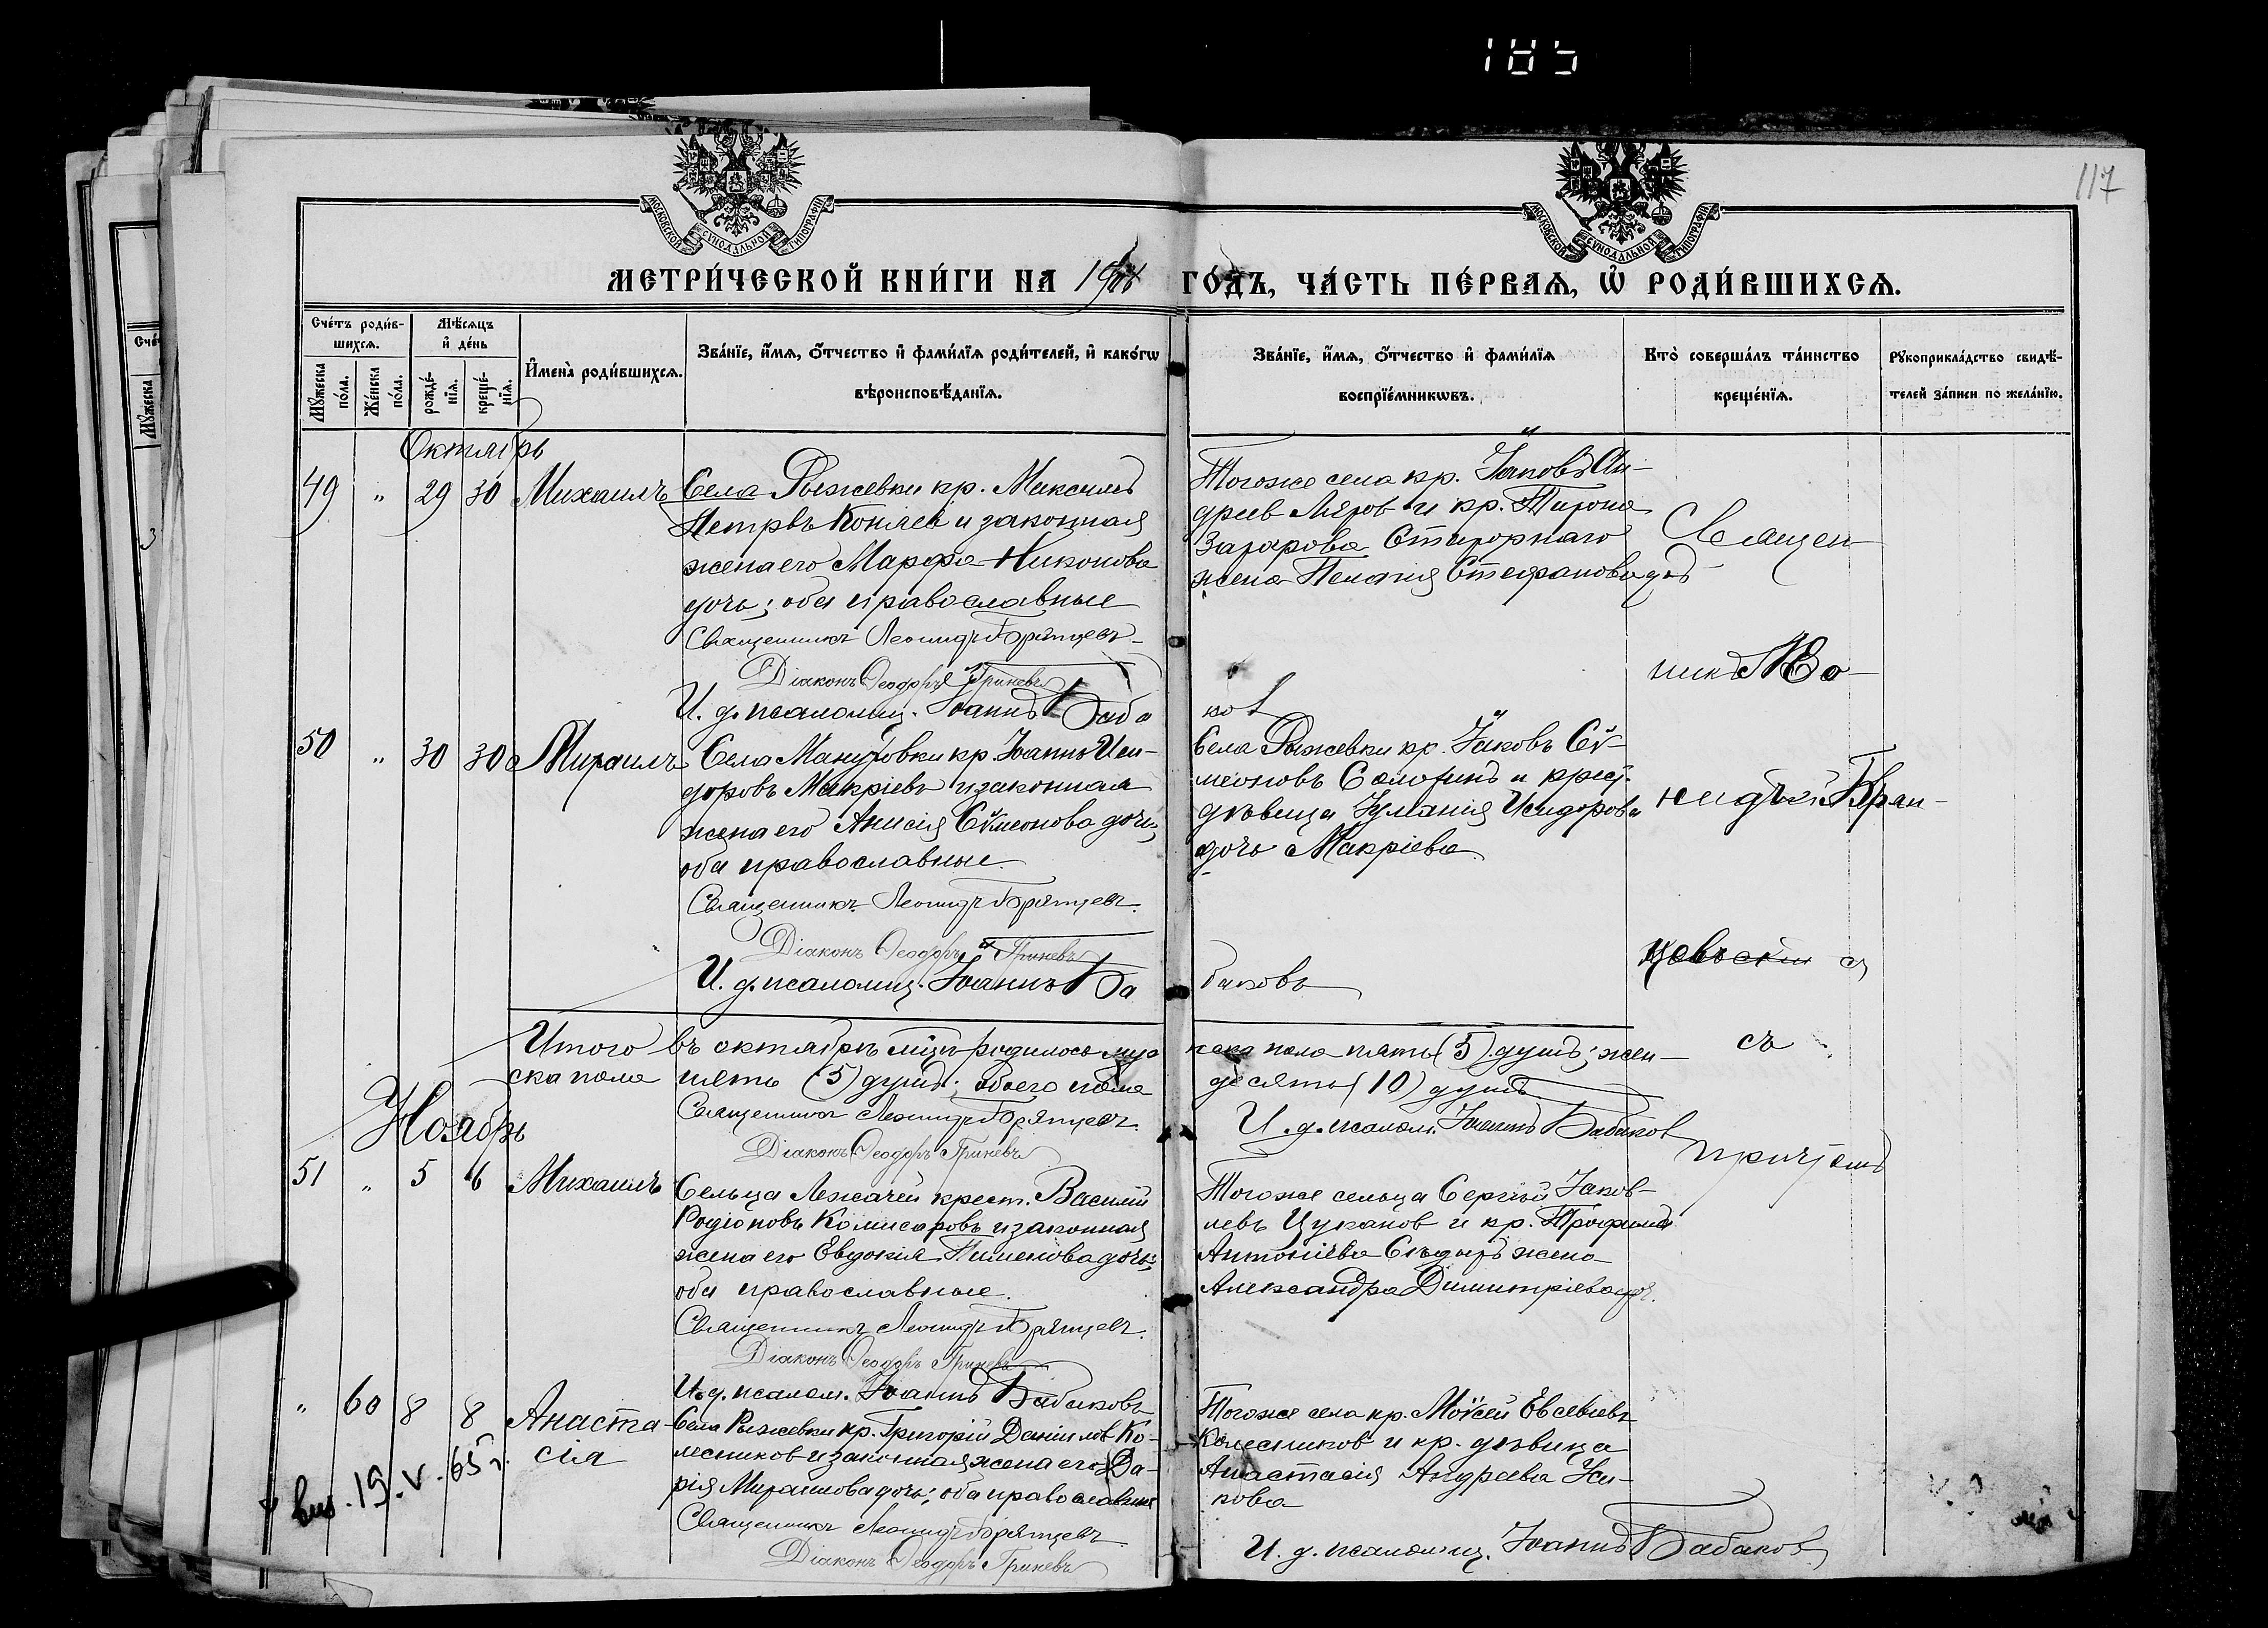 185
117
МОСКОВСКОЙ СѴНОДАЛЬНОЙ ТИПОГРАФІИ
МОСКОВСКОЙ СѴНОДАЛЬНОЙ ТИПОГРАФІИ
МЕТРИ́ЧЕСКОЙ КНИ́ГИ НА 19 ГО́ДЪ, ЧА́СТЬ ПЕ́РВАѦ, Ѡ РОДИ́ВШИХСѦ.
Сче́тъ роди́в-
шихсѧ.
Мѣ́сѧцъ
и де́нь
Мꙋжеска по́ла.
Же́нска по́ла.
рожде́-
нїѧ.
креще́-
нїѧ.
Имена̀ роди́вшихсѧ.
Зва́нїе, и́мѧ, о́тчество и фами́лїѧ роди́телей, и како́гѡ
вѣроисповѣ́данїѧ.
Зва́нїе, и́мѧ, о́тчество и фами́лїѧ
воспрїе́мникѡвъ.
Кто̀ соверша́лъ та́инство
креще́нїѧ.
Рꙋкоприкла́дство свидѣ́-
телей за́писи по жела́нїю.
Октябрь
49 " 29 30 Михаилъ
Села Рыжевки кр. Максимъ
Петровъ Коняев и законная
жена его Марфа Никонова
дочь; оба православные
Священникъ Леонидъ Брянцевъ
Діаконъ Ѳеодоръ Гриневъ
И. д. псаломщ. Іоаннъ Баба
ков
Тогоже села кр. Іаковъ Ан-
дреев и кр.
Захарова
жена Пелагія Стефанова доч
Священ-
никъ
50 " 30 30 Михаилъ
Села Мануховки кр. Іоаннъ Иси-
доровъ Макріевъ и законная
жена его Анисія Сѵмеонова дочь;
оба православные
Священникъ Леонидъ Брянцевъ.
Діаконъ Ѳеодоръ Гриневъ
И. д. псаломщ. Іоаннъ Ба
баковъ
Села Рыжевки кр. Іаковъ Сѵ-
меоновъ и крест.
дѣвица Іуліанія Исидорова
дочь Макріева
Брян-
цевъ
съ
Итого въ октябрѣ мцѣ родилось муж
ска пола пять (5) душъ; жен-
ска пола пять (5) душъ; обоего пола
десять (10) душъ
Священникъ Леонидъ Брянцевъ
Діаконъ Ѳеодоръ Гриневъ
И. д. псалом. Іоаннъ Бабаков
причтомъ
Ноябрь
51 " 5 6 Михаилъ
Сельца Лежачей крест. Василій
Родіоновъ Комисаровъ и законная
жена его Евдокія Пименова дочь;
оба православные.
Священникъ Леонидъ Брянцевъ.
Діаконъ Ѳеодоръ Гриневъ
И. д. псалом. Іоаннъ Бабаковъ
Тогоже сельца Сергій Іаков-
левъ Цуканов и кр. Трофима
Антоніева жена
Александра Димитріева доч.
" 60 8 8 Анаста-
сія
Села Рыжевки кр. Григорій Даніилов Ко-
лесников и законная жена его Да-
рія Михаилова дочь; оба православные
Священникъ Леонидъ Брянцевъ
Діаконъ Ѳеодоръ Гриневъ
Тогоже села кр. Моѵсей Евсевіевъ
Колесников и кр. дѣвица
Анастасія Андреева
И. д. псаломщ. Іоаннъ Бабаков
19.V.65 г.